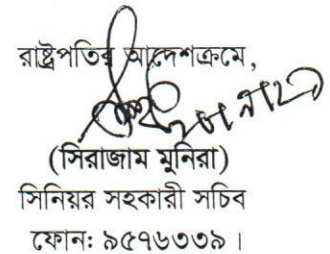 রাষ্ট্রপতির আদেশক্রমে,
(সিরাজাম মুনিরা)
সিনিয়র সহকারী সচিব
ফোন: ৯৫৭৬৩৩৯ ।